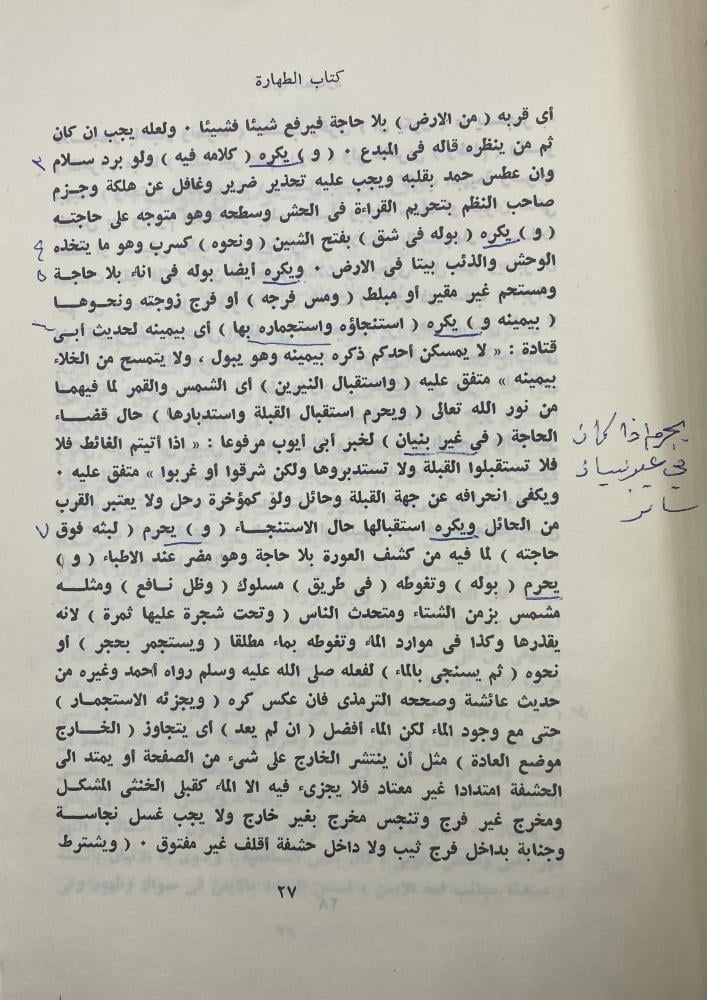 كتاب الطهارة
أى قربه ( من الارض ) بلا حاجة فيرفع شيئا فشيئا ٠ ولعله يجب ان كان
ثم من ينظره قاله فى المبدع ٠ ( و ) يكره ( كلامه فيه ) ولو برد سلام
٣
وان عطس حمد بقلبه ويجب عليه تحذير ضرير وغافل عن هلكة وجزم
صاحب النظم بتحريم القراءة فى الحش وسطحه وهو متوجه على حاجته
( و ) يكره ( بوله فى شق ) بفتح الشين ( ونحوه ) كسرب وهو ما يتخذه
٤
الوحش والذئب بيتا فى الارض ٠ ويكره أيضا بوله فى اناء بلا حاجة
٥
ومستحم غير مقير أو مبلط ( ومس فرجه ) أو فرج زوجته ونحوها
( بيمينه و ) يكره ( استنجاؤه واستجماره بها ) أى بيمينه لحديث أبى
٦
قتادة : « لا يمسكن أحدكم ذكره بيمينه وهو يبول ، ولا يتمسح من الخلاء
بيمينه » متفق عليه ( واستقبال النيرين ) أى الشمس والقمر لما فيهما
من نور الله تعالى ( ويحرم استقبال القبلة واستدبارها ) حال قضاء
الحاجة ( فى غير بنيان ) لخبر أبى أيوب مرفوعا : « اذا أتيتم الغائط فلا
يحرم اذا كان
فلا تستقبلوا القبلة ولا تستدبروها ولكن شرقوا أو غربوا » متفق عليه ٠
في غير بنيان
ويكفى انحرافه عن جهة القبلة وحائل ولو كمؤخرة رحل ولا يعتبر القرب
ساتر
من الحائل ويكره استقبالها حال الاستنجاء ( و ) يحرم ( لبثه فوق
٧
حاجته ) لما فيه من كشف العورة بلا حاجة وهو مضر عند الاطباء ( و )
يحرم ( بوله ) وتغوطه ( فى طريق ) مسلوك ( وظل نافع ) ومثله
مشمس بزمن الشتاء ومتحدث الناس ( وتحت شجرة عليها ثمرة ) لانه
يقذرها وكذا فى موارد الماء وتغوطه بماء مطلقا ( ويستجمر بحجر ) أو
نحوه ( ثم يستنجى بالماء ) لفعله صلى الله عليه وسلم رواه أحمد وغيره من
حديث عائشة وصححه الترمذى فان عكس كره ( ويجزئه الاستجمار )
حتى مع وجود الماء لكن الماء أفضل ( ان لم يعد ) أى يتجاوز ( الخارج
موضع العادة ) مثل أن ينتشر الخارج على شىء من الصفحة أو يمتد الى
الحشفة امتدادا غير معتاد فلا يجزىء فيه الا الماء كقبلى الخنثى المشكل
ومخرج غير فرج وتنجس مخرج بغير خارج ولا يجب غسل نجاسة
وجنابة بداخل فرج ثيب ولا داخل حشفة أقلف غير مفتوق ٠ ( ويشترط
٢٧